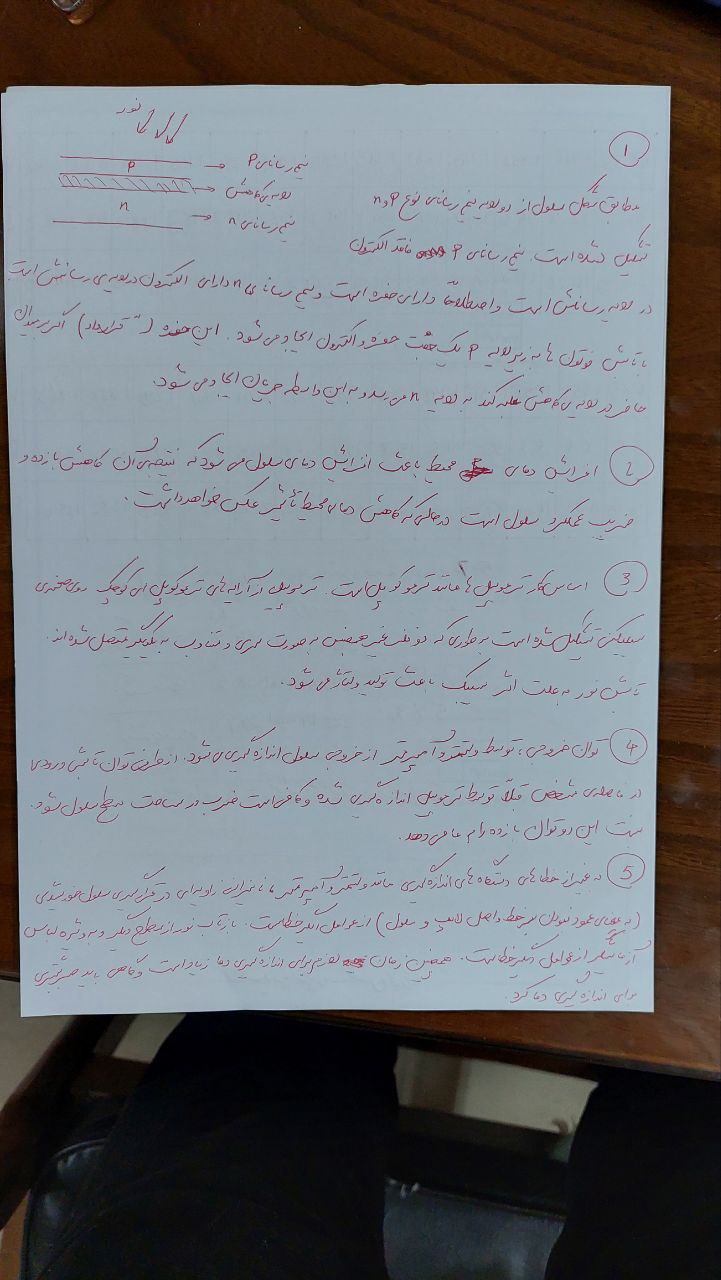 نور
1
P
n
نیم رسانای P
لایه ی کاهش
نیم رسانای n
مطابق شکل سلول از دو لایه نیم رسانای نوع P و n
تشکیل شده است. نیم رسانای P فاقد الکترون
در لایه رسانش است و اصطلاحاً دارای حفره است و نیم رسانای n دارای الکترون در لایه ی رسانش است
با تابش فوتون ها به زیر لایه P یک جفت حفره و الکترون ایجاد می شود. این حفره (قرارداد) اگر بر
حاضر در لایه ی کاهش غلبه کند به لایه n می رسد و به این واسطه جریان ایجاد می شود.
2 افزایش دمای محیط باعث افزایش دمای سلول می شود که نتیجه ی آن کاهش بازده و
ضریب عملکرد سلول است در حالی که کاهش دمای محیط تأثیر عکس خواهد داشت.
3 اساس کار ترموپیل ها مانند ترموکوپل است. ترموپیل از آرایه های ترموکوپل ای کوچک روی صفحه ی
سیلیکنی تشکیل شده است به طوری که دو فلز غیر همجنس به صورت سری و متناوب به یکدیگر متصل شده اند.
تابش نور به علت اثر سیبک باعث تولید ولتاژ می شود.
4 توان خروجی، توسط ولتمتر و آمپرمتر از خروجی سلول اندازه گیری می شود. از طرفی توان تابشی ورودی
در فاصله ی مشخص قبلاً توسط ترموپیل اندازه گیری شده و کافی است ضرب در مساحت سطح سلول شود.
نسبت این دو توان بازده را به ما می دهد.
5 به غیر از خطاهای دستگاه های اندازه گیری مانند ولتمتر و آمپرمتر، نامیزانی زاویه ای در قرارگیری سلول خورشیدی
(به معنای عمود نبودن بر خط واصل لامپ و سلول) از عوامل دیگر خطاست. بازتاب نور از سطوح دیگر و به ویژه لباس
آزمایشگر از عوامل دیگر خطاست. همچنین زمان لازم برای اندازه گیری دما زیاد است و گاهی باید صبر بیشتری
برای اندازه گیری دما کرد.